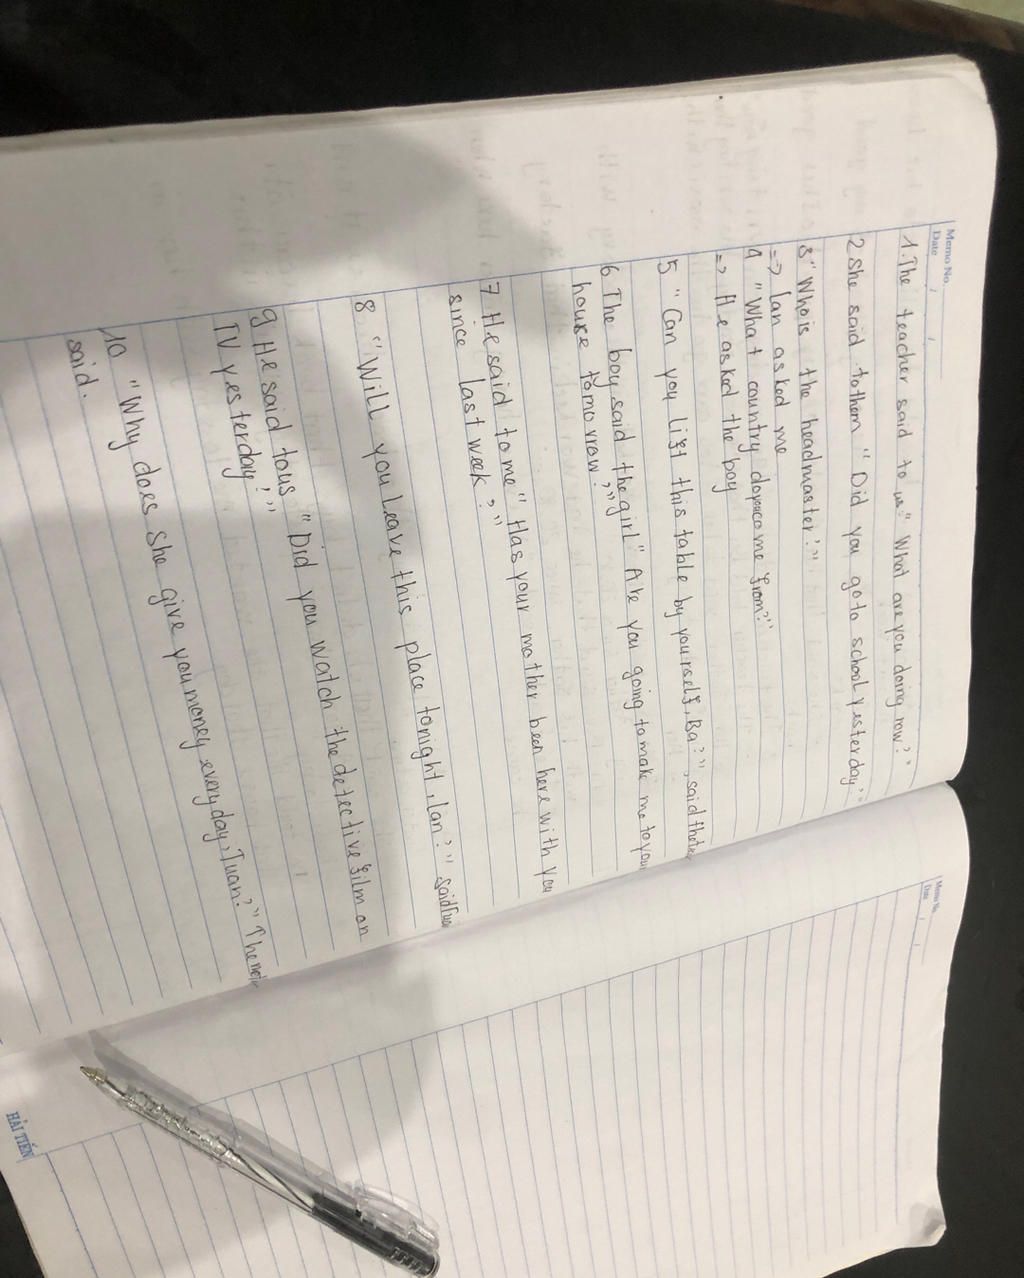 Memo No.
Date / /
1. The teacher said to us: "What are you doing now?"
2 She said to them "Did you go to school yesterday?"
3 "Who is the headmaster?"
=> Lan asked me
4 "What country do you come from?"
=> He asked the boy
5 "Can you lift this table by yourself, Ba?", said
6 The boy said the girl "Are you going to make me to your
house tomovrow?"
7 He said to me "Has your mother been here with you
since last week?"
8 "Will you leave this place tonight, Lan?" said
9 He said to us "Did you watch the detective film on
TV yesterday?"
10 "Why does she give you money everyday, Tuan?" The
said.
Memo No.
Date / /
HẢI TIẾN